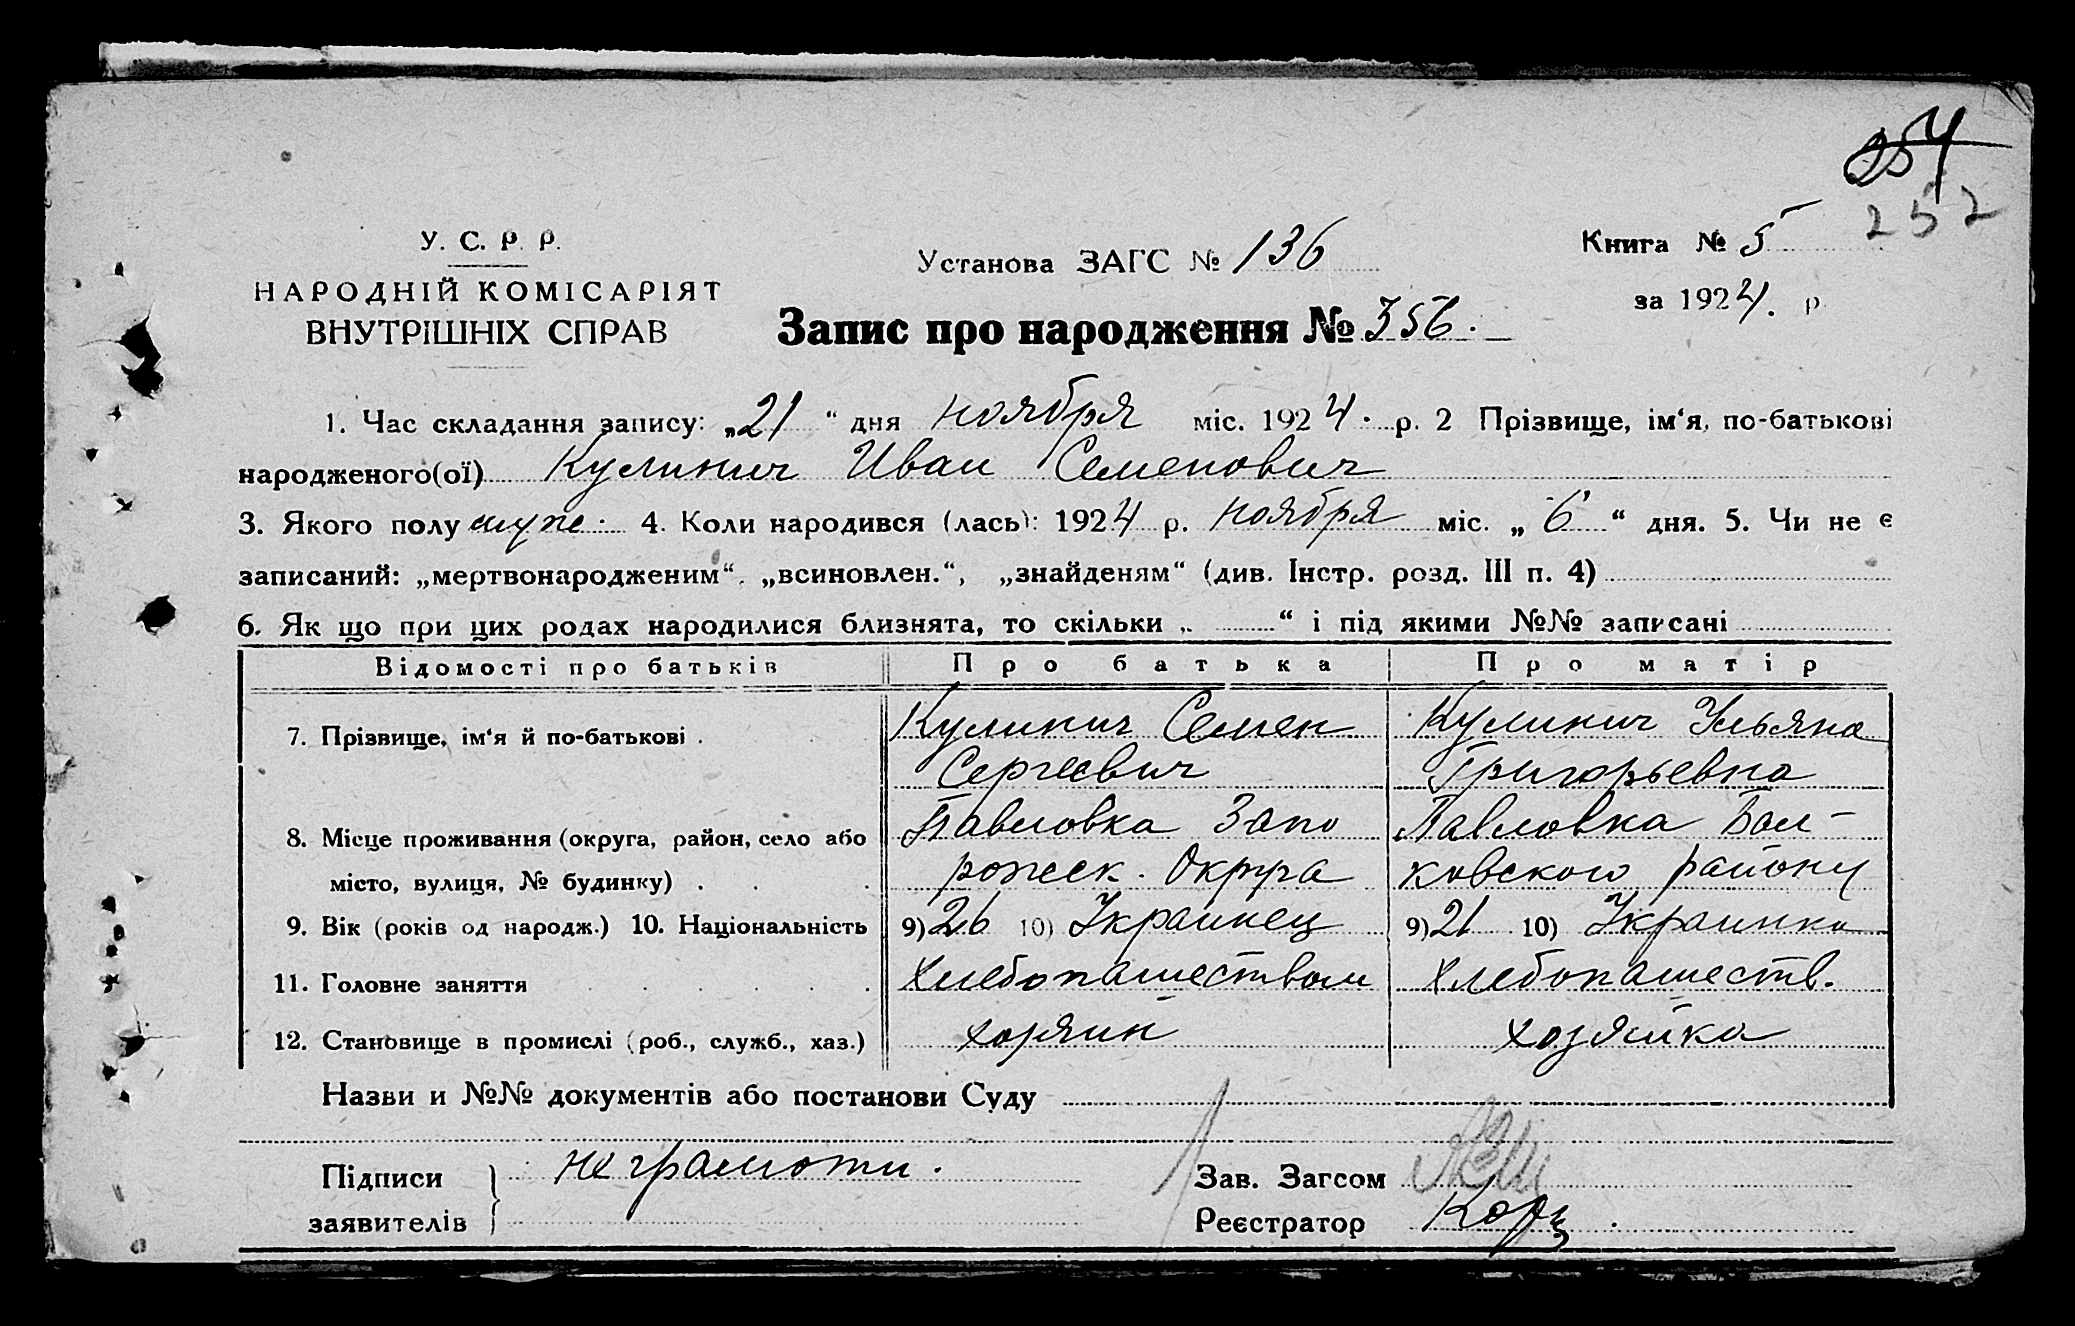 254
252
У. С. Р. Р.
НАРОДНІЙ КОМІСАРІЯТ
ВНУТРІШНІХ СПРАВ
Установа ЗАГС № 136
Книга № 5
за 1924. р.
Запис про народження № 356.
1. Час складання запису: „21“ дня ноября міс. 1924. р. 2 Прізвище, ім‘я, по-батькові
народженого(ої) Кулинич Иван Семенович
3. Якого полу муж. 4. Коли народився (лась): 1924 р. ноября міс. „6“ дня. 5. Чи не є
записаний: „мертвонародженим“, „всиновлен.“, „знайденям“ (див. Інстр. розд. III п. 4)
6. Як що при цих родах народилися близнята, то скільки „ “ і під якими №№ записані
Відомості про батьків Про батька Про матір
7. Прізвище, ім‘я й по-батькові . Кулинич Семен Кулинич Ульяна
Сергеевич Григорьевна
8. Місце проживання (округа, район, село або Павловка Запо Павловка Бал-
місто, вулиця, № будинку) . . . рожеск. Округа ковского району
9. Вік (років од народж.) 10. Національність 9) 26 10) Украинец 9) 21 10) Украинка
11. Головне заняття . . . . . Хлебопашеством Хлебопашеств.
12. Становище в промислі (роб., служб., хаз.) хозяин хозяйка
Назви и №№ документів або постанови Суду
Підписи неграмотн. Зав. Загсом
заявителів Реєстратор